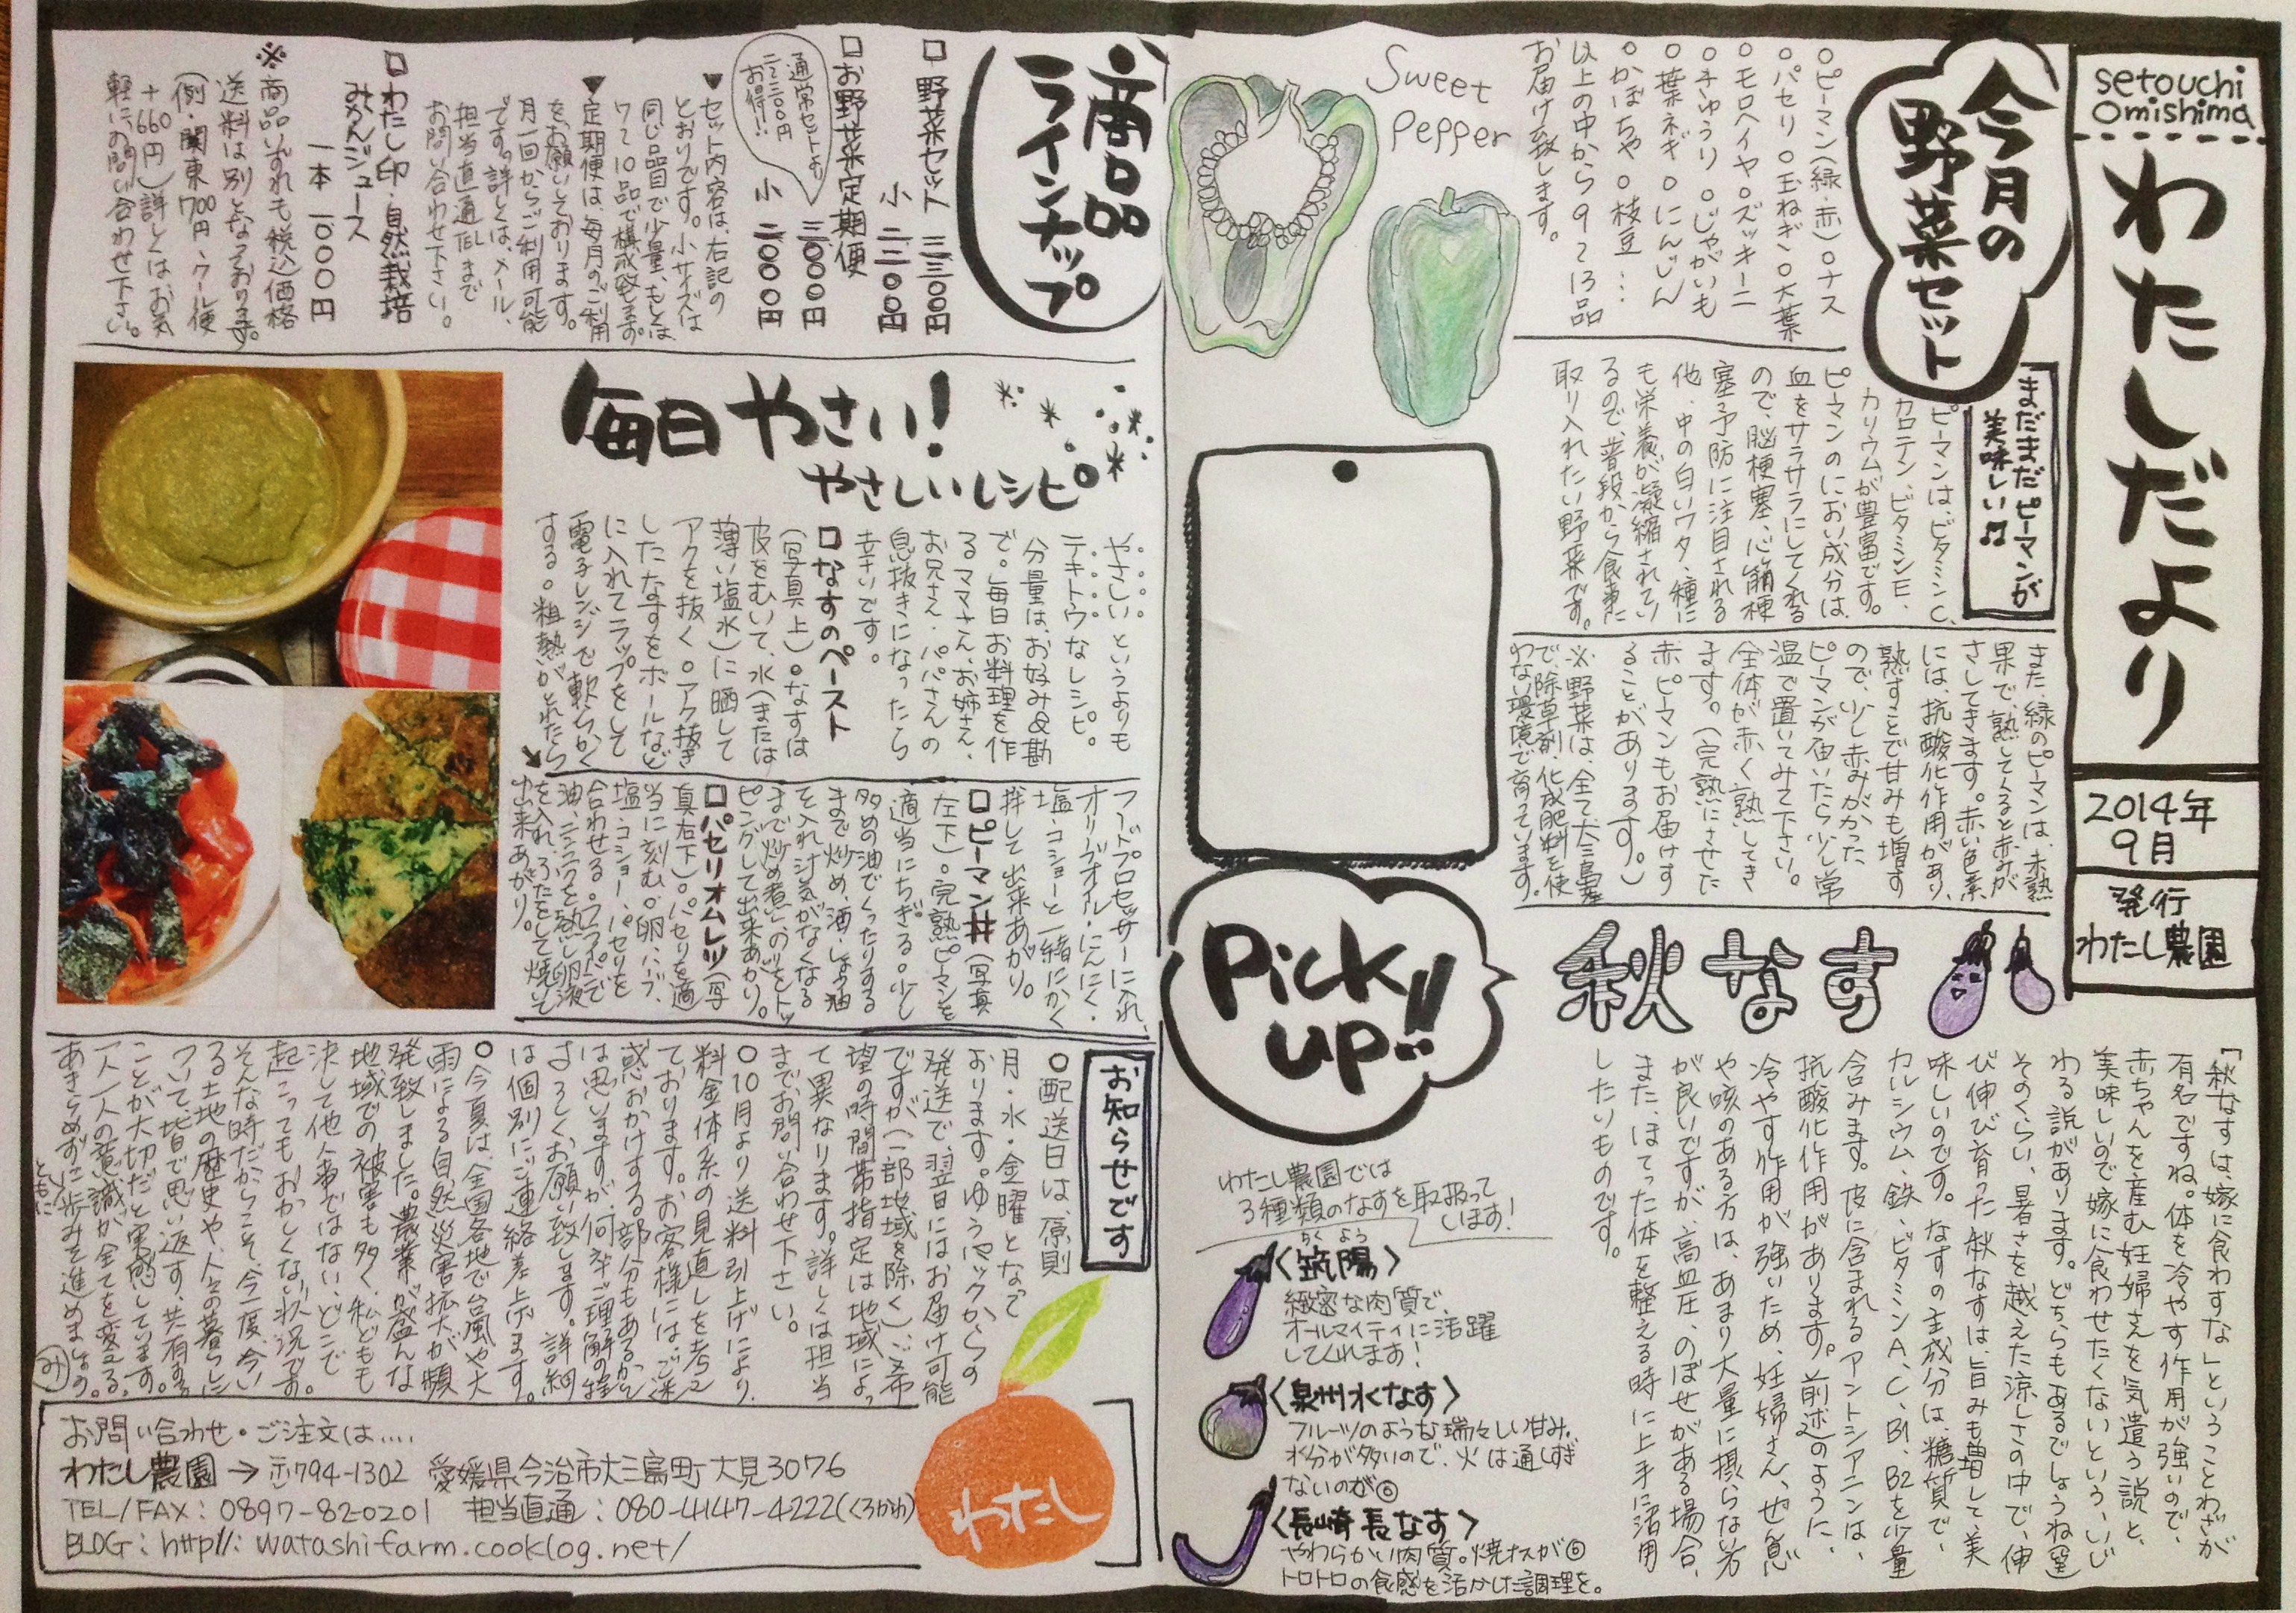 setouchi
omishima
わたしだより
2014年
9月
発行
わたし農園
今月の
野菜セット
○ピーマン(緑・赤)○ナス
○パセリ ○玉ねぎ ○大葉
○モロヘイヤ ○ズッキーニ
○きゅうり ○じゃがいも
○葉ネギ ○にんじん
○かぼちゃ ○枝豆…
以上の中から9〜13品
お届け致します。
Sweet
Pepper
まだまだピーマンが
美味しい♫
ピーマンは、ビタミンC、
カロテン、ビタミンE、
カリウムが豊富です。
ピーマンのにおい成分は、
血をサラサラにしてくれる
ので、脳梗塞、心筋梗
塞予防に注目される
他、中の白いワタ、種に
も栄養が凝縮されてい
るので、普段から食事に
取り入れたい野菜です。
また、緑のピーマンは、未熟
果で、熟してくると赤みが
さしてきます。赤い色素
には、抗酸化作用があり、
熟すことで甘みも増す
ので、少し赤みがかった
ピーマンが届いたら少し常
温で置いてみて下さい。
全体が赤く熟してき
ます。(完熟にさせた
赤ピーマンもお届けす
ることがあります。)
※野菜は、全て大三島産
で、除草剤、化成肥料を使
わない環境で育っています。
Pick
up!!
秋なす
「秋なすは、嫁に食わすな」ということわざが
有名ですね。体を冷やす作用が強いので、
赤ちゃんを産む妊婦さんを気遣う説と、
美味しいので嫁に食わせたくないという、いじ
わる説があります。どちらもあるでしょうね(笑)
そのくらい、暑さを越えた涼しさの中で、伸
び伸び育った秋なすは、旨みも増して、美
味しいのです。なすの主成分は、糖質で、
カルシウム、鉄、ビタミンA、C、B1、B2を少量
含みます。皮に含まれるアントシアニンは、
抗酸化作用があります。前述のように、
冷やす作用が強いため、妊婦さん、ぜん息
や咳のある方は、あまり大量に摂らない方
が良いですが、高血圧、のぼせがある場合、
また、ほてった体を整える時に上手に活用
したいものです。
わたし農園では
3種類のなすを取扱って
します!
ちくよう
〈筑陽〉
緻密な肉質で、
オールマイティに活躍
してくれます!
〈泉州水なす〉
フルーツのような瑞々しい甘み。
水分が多いので、火は通しすぎ
ないのが◎
〈長崎長なす〉
やわらかい肉質。焼ナスが◎
トロトロの食感を活かした調理を。
商品
ラインナップ
□野菜セット 三三〇〇円
小 二二〇〇円
□お野菜定期便
三〇〇〇円
小 二〇〇〇円
通常セットより
二〜三〇〇円
お得!!
▼セット内容は、右記の
とおりです。小サイズは
同じ品目で少量、もしくは
7〜10品で構成致します。
▼定期便は、毎月のご利用
をお願いしております。
月一回からご利用可能
です。詳しくは、メール、
担当直通TELまで
お問い合わせ下さい。
□わたし印・自然栽培
みかんジュース
一本 一〇〇〇円
※商品いずれも税込価格
送料は別となっております。
(例・関東700円、クール便
+660円)詳しくはお気
軽にお問い合わせ下さい。
毎日やさい!
やさしいレシピ
やさしいというよりも
テキトウなレシピ。
分量は、お好み&勘
で。毎日お料理を作
るママさん、お姉さん、
お兄さん・パパさんの
息抜きになったら
幸いです。
□なすのペースト
(写真上)○なすは
皮をむいて、水(または
薄い塩水)に晒して
アクを抜く○アク抜き
したなすをボールなど
に入れてラップをして
電子レンジで軟らかく
する。○粗熱がとれたら
フードプロセッサーに入れ、
オリーブオイル・にんにく・
塩・コショーと一緒にかく
拌して出来あがり。
□ピーマン丼(写真
左下)○完熟ピーマンを
適当にちぎる○少し
多めの油でくったりする
まで炒め、酒・しょう油
を入れ汁気がなくなる
まで炒め煮○のりをトッ
ピングして出来あがり。
□パセリオムレツ(写
真右下)○パセリを適
当に刻む○卵、ハーブ、
塩・コショー、パセリを
合わせる○フライパンで
油、ニンニクを熱し卵液
を入れ、ふたをして焼いて
出来あがり。
お知らせです
○配送日は、原則
月・水・金曜となって
おります。ゆうパックからの
発送で、翌日にはお届け可能
ですが(一部地域を除く)、ご希
望の時間帯指定は地域によっ
て異なります。詳しくは担当
までお問い合わせ下さい。
○10月より送料引上げにより、
料金体系の見直しを考え
ております。お客様には、ご迷
惑おかけする部分もあるかと
は思いますが、何卒ご理解の程
よろしくお願い致します。詳細
は個別にご連絡差上げます。
○今夏は、全国各地で台風や大
雨による自然災害拡大が頻
発致しました。農業が盛んな
地域での被害も多く、私どもも
決して他人事ではない、どこで
起こってもおかしくない状況です。
そんな時だからこそ、今一度、今い
る土地の歴史や、人々の暮らしに
ついて、皆で思い返す、共有する
ことが大切だと実感しています。
一人一人の意識が全てを変える、
あきらめずに歩みを進めましょう。
み
お問い合わせ・ご注文は....
わたし農園→〒794-1302 愛媛県今治市大三島町大見3076
TEL/FAX:0897-82-0201 担当直通:080-4147-4222(くろかわ)
BLOG:http//: watashifarm.cooklog.net/
わたし